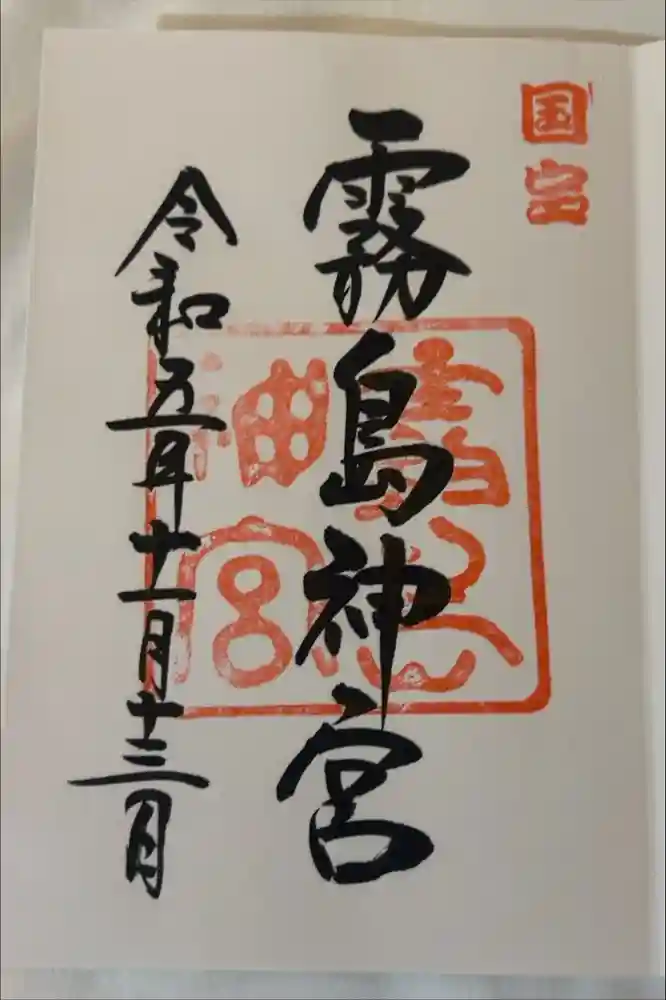 国宝
霧島神宮
霧島
神宮
令和五年十一月十三日